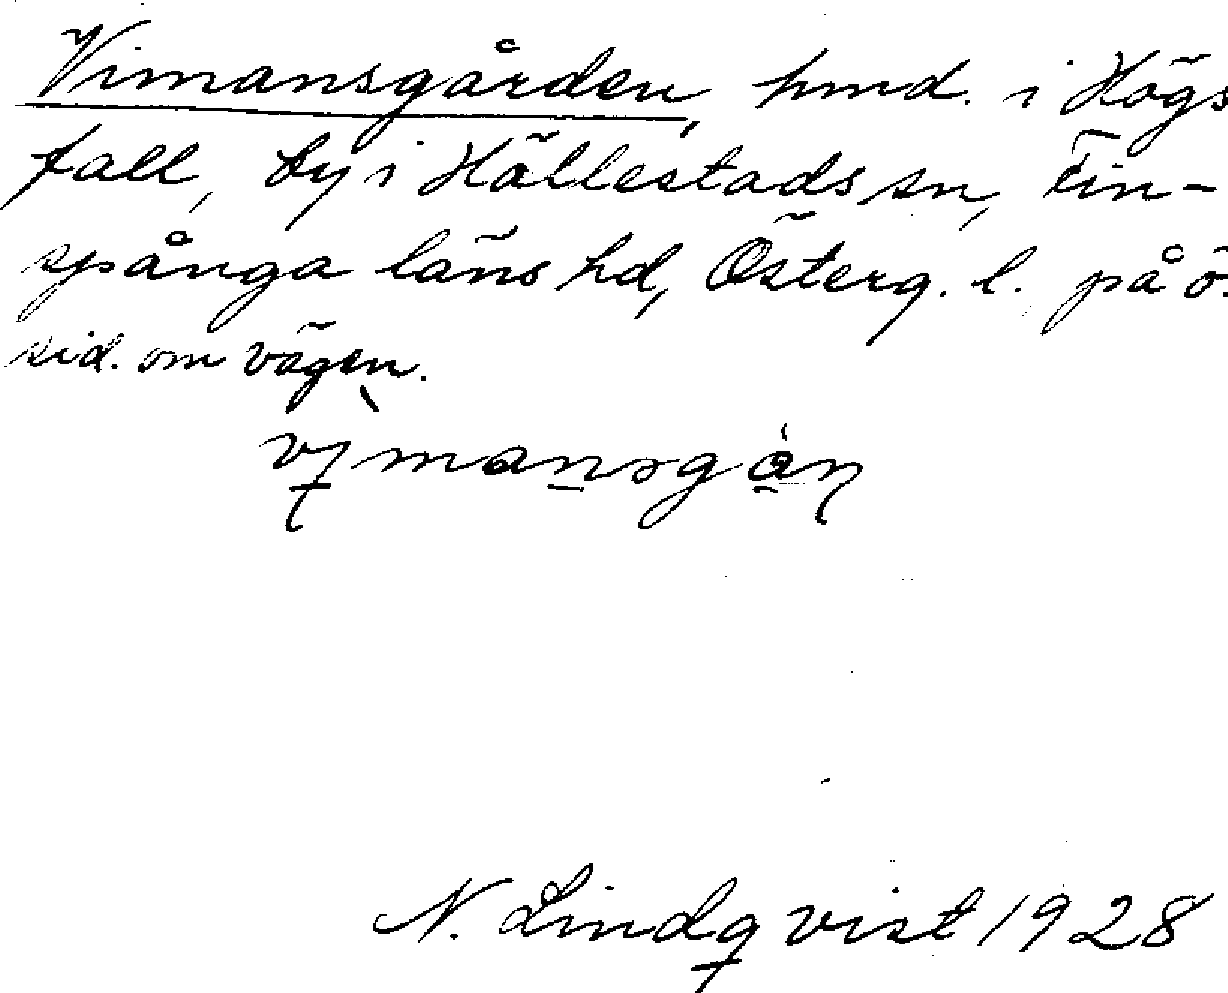 Vimansgården, hmd. i Högs
fall, by i Hällestads sn, Fin-
spånga läns hd, Österg. l. på ö.
sid. om vägen.
N. Lindqvist 1928